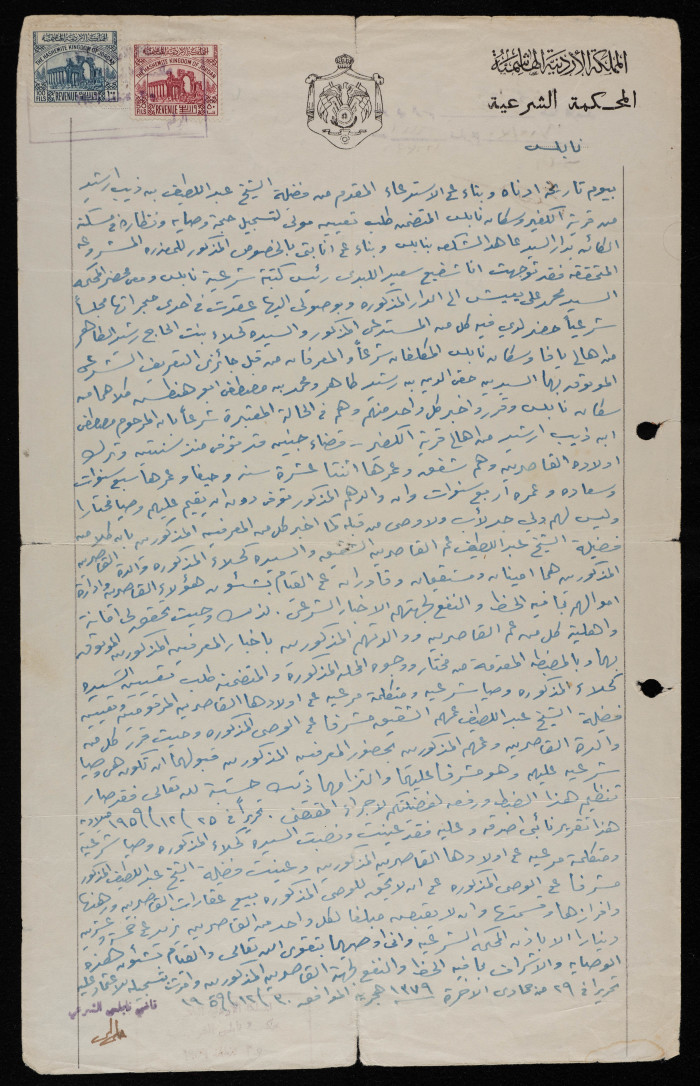 المملكة الأردنية الهاشمية
المحكمة الشرعية
نابلس
THE HASHEMITE KINGDOM OF JORDAN
REVENUE
FILS
THE HASHEMITE KINGDOM OF JORDAN
REVENUE
FILS
بيوم تاريخه ادناه وبناء على الاستدعاء المقدم من فضيلة الشيخ عبد اللطيف بن ذيب ارشيد
من قرية الكفير وسكان نابلس المتضمن طلب تعيينه مولى لتسجيل حجة وصاية ونظارة في مسكنه
الكائن بدار السيد بنابلس وبناء على انابتي بالخصوص المذكور للمعذرة المشروعة
المتحققة فقد توجهت انا شفيع سعيد اللبدي رئيس كتبة شرعية نابلس ومعي محضر المحكمة
السيد محمد علي الى الدار المذكورة وبوصولي اليها عقدت في احدى حجراتها مجلساً
شرعياً حضر لدي فيه كل من المستدعي المذكور والسيدة كحلاء بنت الحاج رشيد الطاهر
من اهالي يافا وسكان نابلس المكلفان شرعاً والمعرفان من قبل جائزي التعريف الشرعي
الموثوق بهما السيدين حقي الدين بن رشيد طاهر ومحمد بن مصطفى ابو كلاهما من
سكان نابلس وقرر واخبر كل واحد منهم وهم في الحالة المعتبرة شرعاً بان المرحوم مصطفى
ابن ذيب ارشيد من اهالي قرية الكفير - قضاء جنين قد توفي منذ سنتين وترك
اولاده القاصرين وهم شفيق وعمرها اثنتا عشرة سنة وحيفا وعمرها سبع سنوات
وسعاده وعمره اربع سنوات وان والدهم المذكور توفي دون ان يقيم عليهم وصيا مختارا
وليس لهم ولي جد لأب ولا وصي من قبله كما اخبر كل من المعرفين المذكورين بان كلا من
فضيلة الشيخ عبد اللطيف عم القاصرين الشقيق والسيدة كحلاء المذكورة والدة القاصرين
المذكورين هما امينان ومستقيمان وقادران على القيام بشئون هؤلاء القاصرين وادارة
اموالهم بما فيه الحظ والنفع لجهتهم الاخبار الشرعي . لذلك وحيث تحقق لي امانة
واهلية كل من عم القاصرين ووالدتهم المذكورين باخبار المعرفين المذكورين الموثوق
بهما وبالمضبطة المقدمة من مختار ووجوه المحلة المذكورة والمتضمنة طلب تعيين السيدة
كحلاء المذكورة وصيا شرعية ومتكلمة مرعية على اولادها القاصرين المرقومين وتعيين
فضيلة الشيخ عبد اللطيف عمهم الشقيق مشرفا على الوصي المذكورة وحيث قرر كل من
والدة القاصرين وعمهم المذكورين بحضور المعرفين المذكورين قبولهما ان تكون هي وصيا
شرعية عليهم وهو مشرفا عليها والتزامها ذلك حسبة لله تعالى فقد صار
تنظيم هذا الضبط ورفعه لفضيلتكم لاجراء المقتضى . تحريراً في ٢٥/١٢/١٩٥٩ ميلادية
هذا تقرير نائبي اصدقه وعليه فقد عينت ونصبت السيدة كحلاء المذكورة وصيا شرعية
ومتكلمة مرعية على اولادها القاصرين المذكورين وعينت فضيلة الشيخ عبد اللطيف المذكور
مشرفا على الوصي المذكورة على ان لا يحق للوصي المذكورة بيع عقارات القاصرين ورهنها
وافرازها وقسمتها وان لا يقبض مبلغا لكل واحد من القاصرين يزيد عن
دينارا الا باذن المحكمة الشرعية واني اوصيهما بتقوى الله تعالى والقيام بشئون هذه
الوصاية والاشراف بما فيه الحظ والنفع لجهة القاصرين المذكورين
تحريرا في ٢٩ من جمادى الآخرة ١٣٧٩ هجرية الموافق ٣٠/١٢/١٩٥٩
قاضي نابلس الشرعي